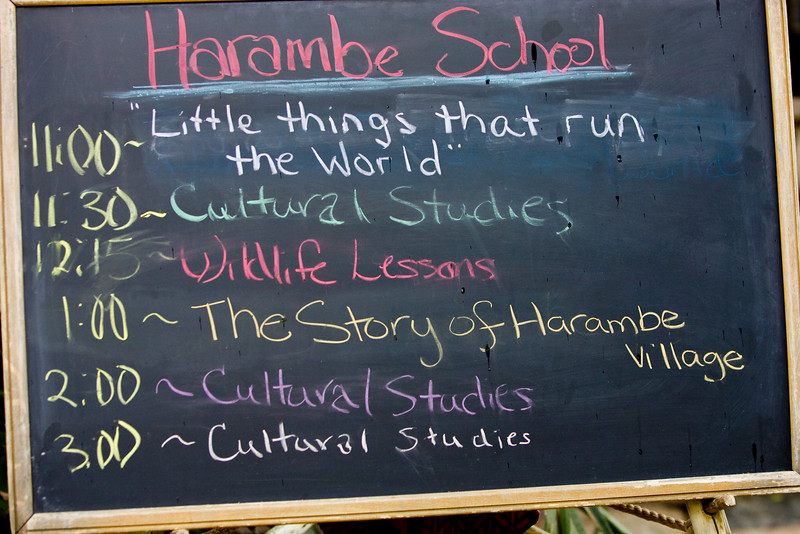 Harambe School
11:00~ "Little things that run
the World"
11:30~ Cultural Studies
12:15~ Wildlife Lessons
1:00~ The Story of Harambe
Village
2:00~ Cultural Studies
3:00~ Cultural Studies